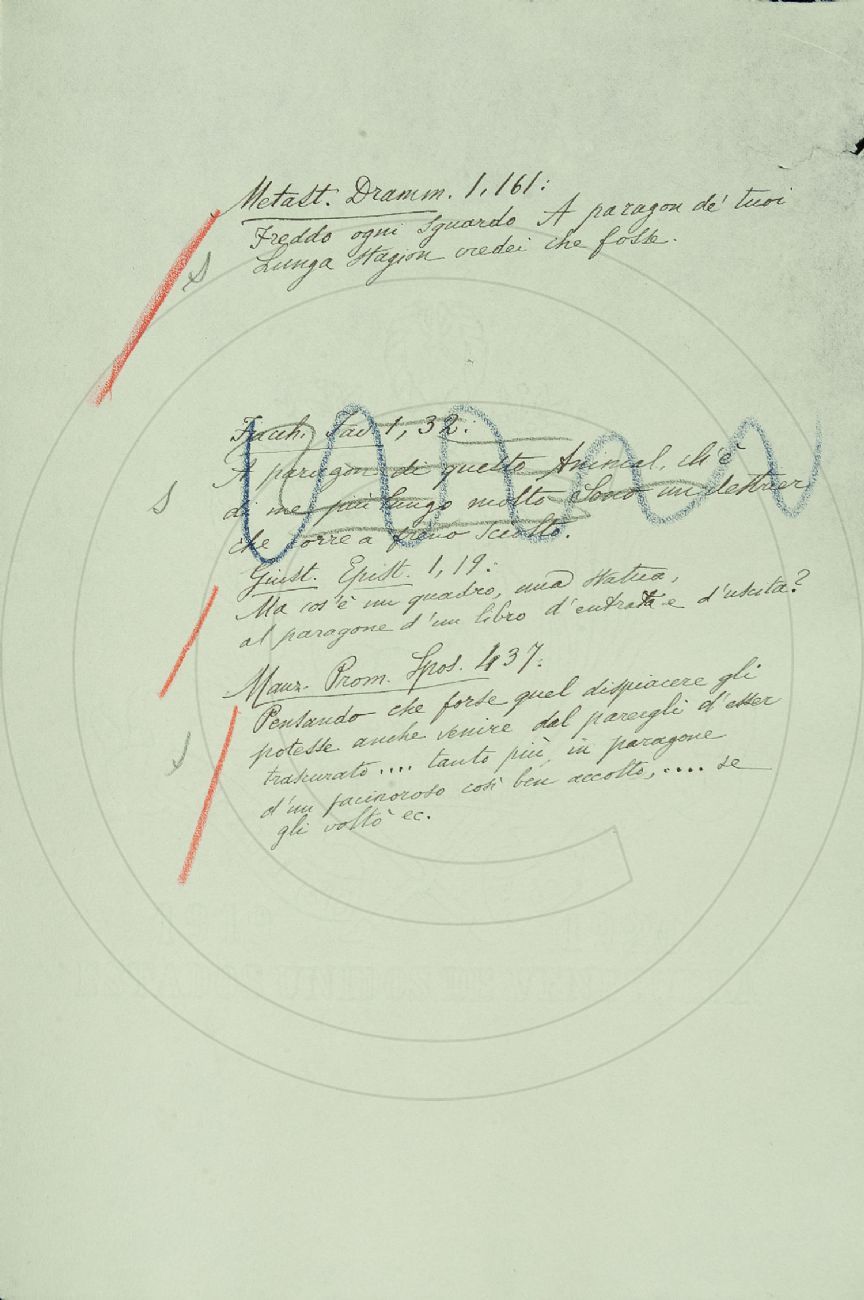 Metast. Dramm. 1, 161:
Freddo ogni sguardo A paragon de' tuoi
Lunga stagion credei che fosse.
Facch. Fav. 1, 32:
A paragon di questo Animal, ch'è
di me più lungo molto Sono un destrier
che corre a freno sciolto.
Giust. Epist. 1, 19:
Ma cos'è un quadro, una statua,
al paragone d'un libro d'entrata e d'uscita?
Manz. Prom. Spos. 437:
Pensando che forse quel dispiacere gli
potesse anche venire dal parergli d'esser
trascurato.... tanto più, in paragone
d'un facinoroso così ben accolto, .... se
gli voltò ec.
S
S
S